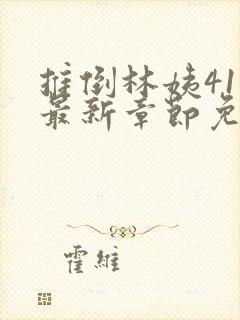 推倒林姨41
最新章節免
霍維